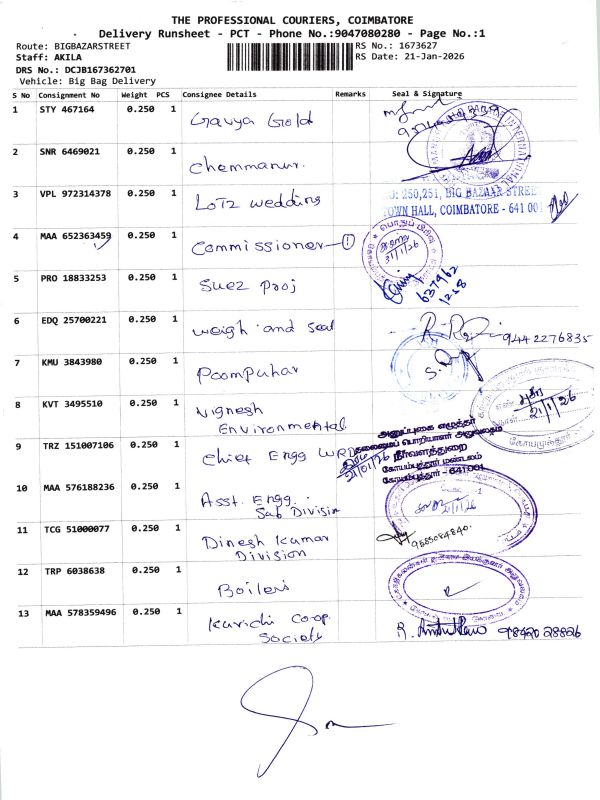 THE PROFESSIONAL COURIERS, COIMBATORE
Delivery Runsheet - PCT - Phone No.:9047080280 - Page No.:1
Route: BIGBAZARSTREET
RS No.: 1673627
Staff: AKILA
RS Date: 21-Jan-2026
DRS No.: DCJB167362701
Vehicle: Big Bag Delivery
S No Consignment No Weight PCS Consignee Details Remarks Seal & Signature
1 STY 467164 0.250 1 Gavya Gold
2 SNR 6469021 0.250 1 Chemmanur.
3 VPL 972314378 0.250 1 LOT2 wedding
250,251, BIG BAZAAR STREET
TOWN HALL, COIMBATORE - 641 001
4 MAA 652363459 0.250 1 Commissioner 1
21/1/26
5 PRO 18833253 0.250 1 Suez Proj
637962
1268
6 EDQ 25700221 0.250 1 weigh and seal
9442276835
7 KMU 3843980 0.250 1 Poompuhar
8 KVT 3495510 0.250 1 Vignesh
Environmental
21/1/26
9 TRZ 151007106 0.250 1 Chief Engg WRD
அனுப்புகை எழுத்தர்
தலைமைப் பொறியாளர் அலுவலகம்
நீர்வளத்துறை
கோயம்புத்தூர் மண்டலம்
கோயம்புத்தூர் - 641 001
21/01/26
10 MAA 576188236 0.250 1 Asst. Engg.
Sab Division
11 TCG 51000077 0.250 1 Dinesh Kumar
Division
9585084840.
12 TRP 6038638 0.250 1 Boilers
13 MAA 578359496 0.250 1 Kurichi Coop.
Society
98420 28826